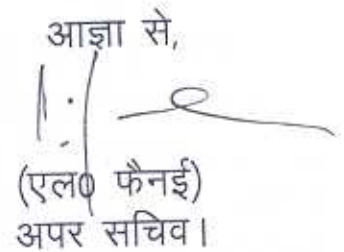 आज्ञा से,
(एल० फैनई)
अपर सचिव।